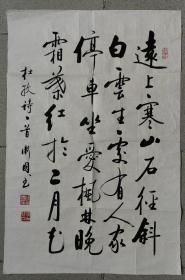 遠上寒山石徑斜
白雲生處有人家
停車坐愛楓林晚
霜葉紅於二月花
杜牧詩一首